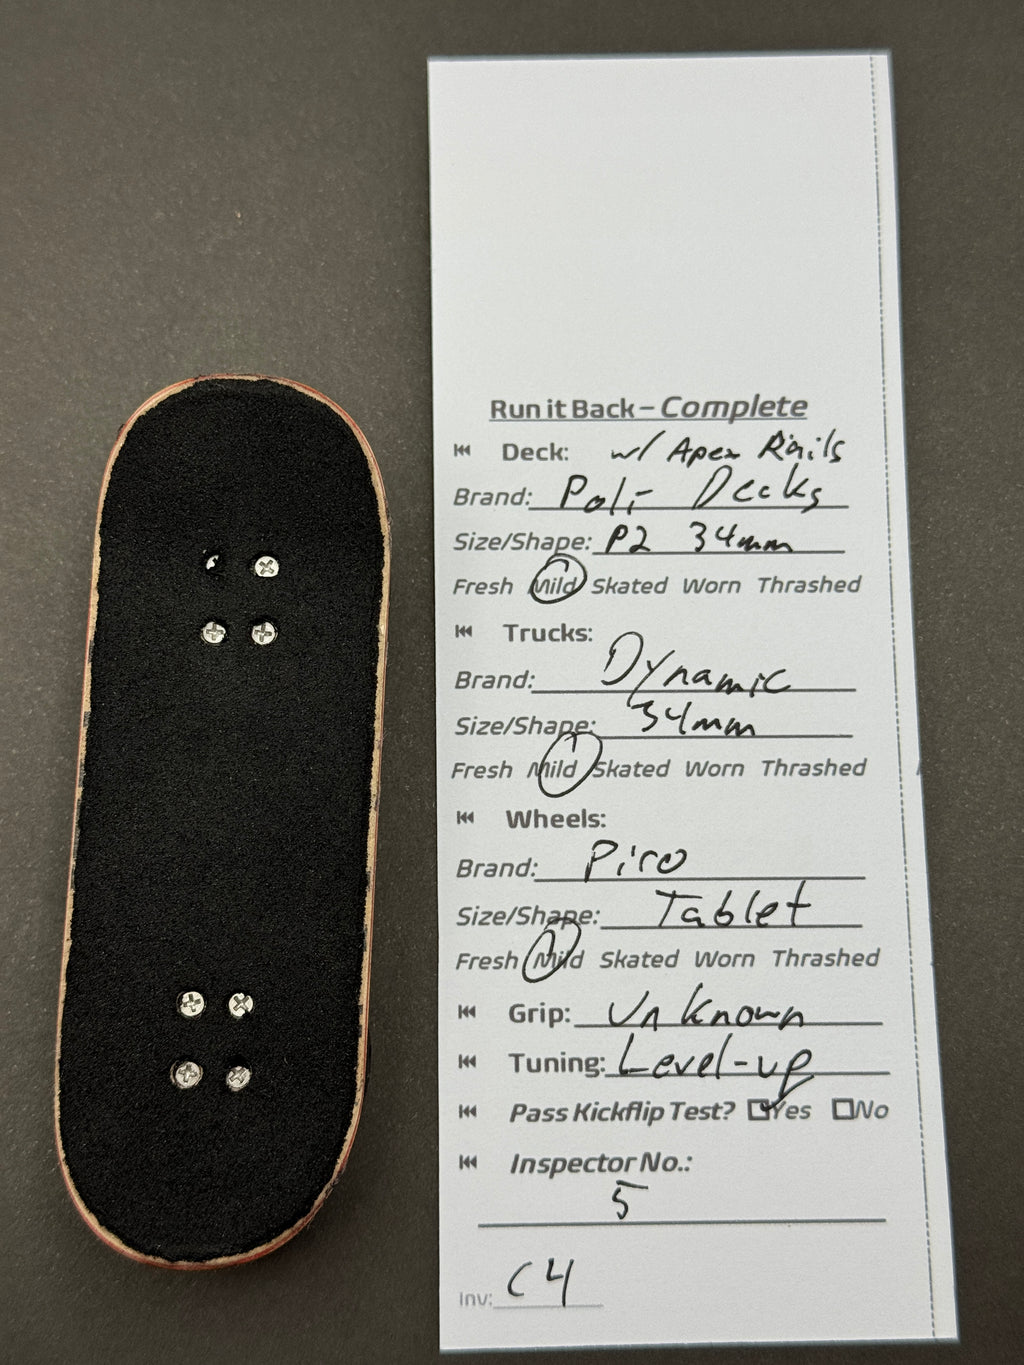 Run it Back – Complete
Deck: w/ Apex Rails
Brand: Poli- Decks
Size/Shape: P2 34mm
Fresh Mild Skated Worn Thrashed
Trucks:
Brand: Dynamic
Size/Shape: 34mm
Fresh Mild Skated Worn Thrashed
Wheels:
Brand: Piro
Size/Shape: Tablet
Fresh Mild Skated Worn Thrashed
Grip: Unknown
Tuning: Level-up
Pass Kickflip Test? Yes No
Inspector No.:
5
Inv: C4